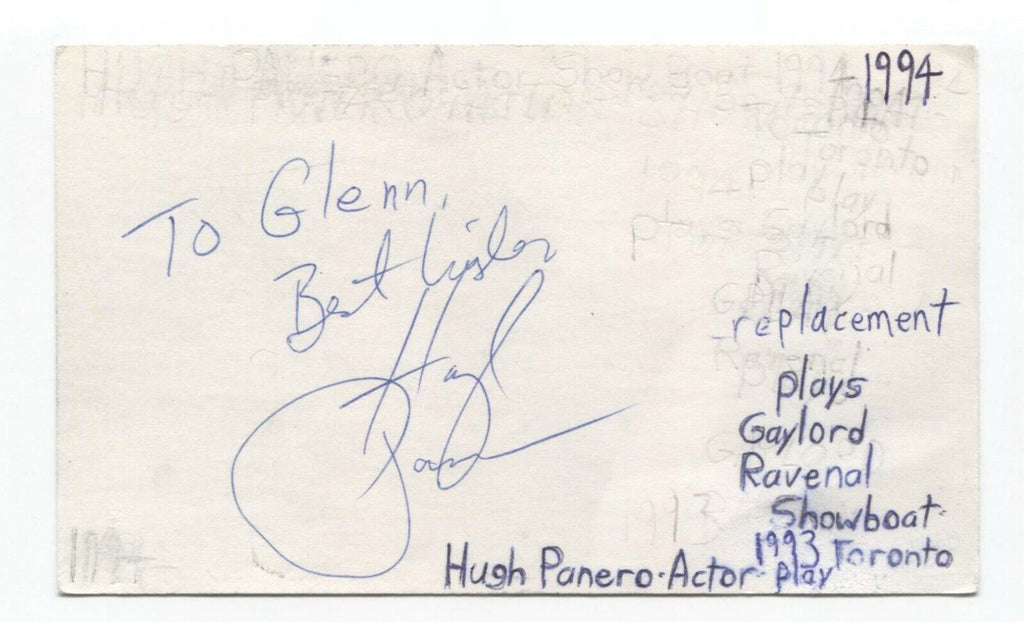 1994
To Glenn,
Best Wishes
Hugh Panero
replacement
plays
Gaylord
Ravenal
Showboat
1993 Toronto
Hugh Panero · Actor play